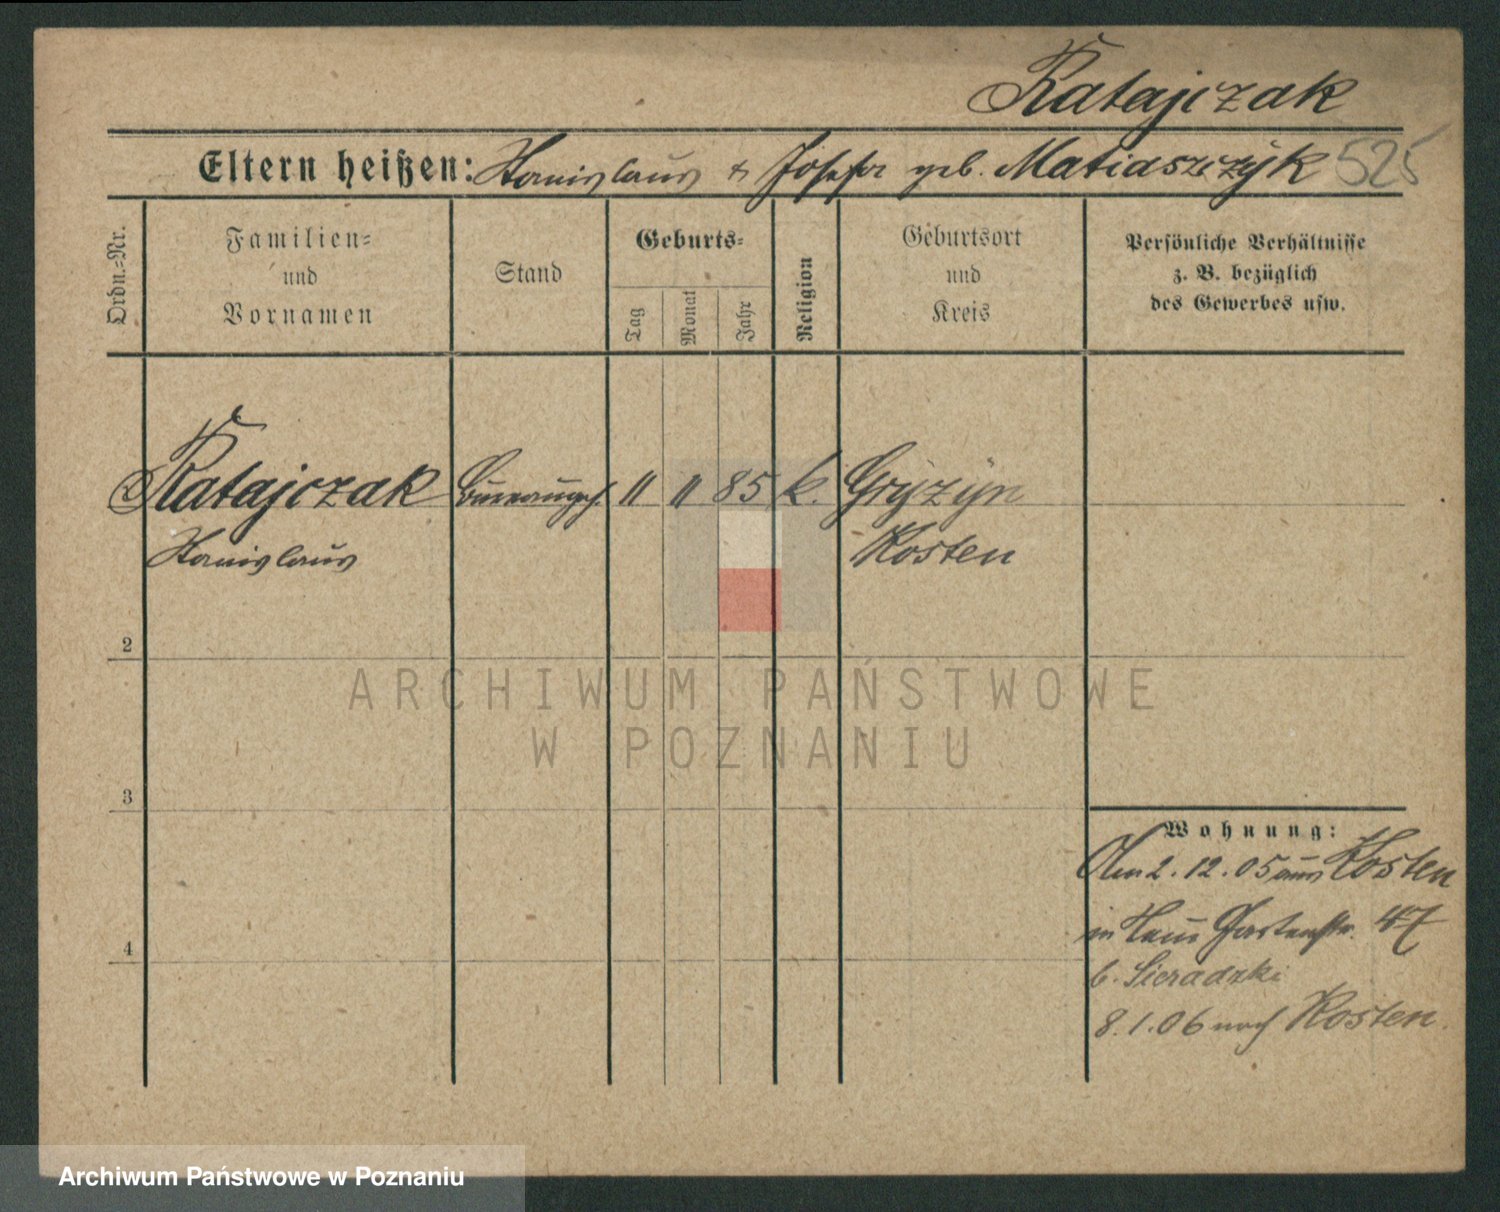 Ratajczak
Eltern heißen: Stanislaus & Josefa geb. Matiaszczyk 525
Ordn.-Nr.
Familien-
und
Vornamen
Stand
Geburts-
Tag
Monat
Jahr
Religion
Geburtsort
und
Kreis
Persönliche Verhältnisse
z. B. bezüglich
des Gewerbes usw.
Ratajczak Bureaugeh. 11 11 85 k. Gryzyn
Stanislaus Kosten
2
ARCHIWUM PAŃSTWOWE
W POZNANIU
3
Wohnung:
Am 2.12.05 aus Kosten
in Gartenstr. 47
b. Sieradzki
8.1.06 nach Kosten.
4
Archiwum Państwowe w Poznaniu